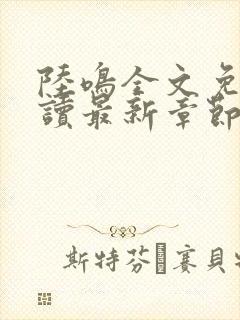 陸鳴全文免
讀最新章節
斯特芬 賽貝